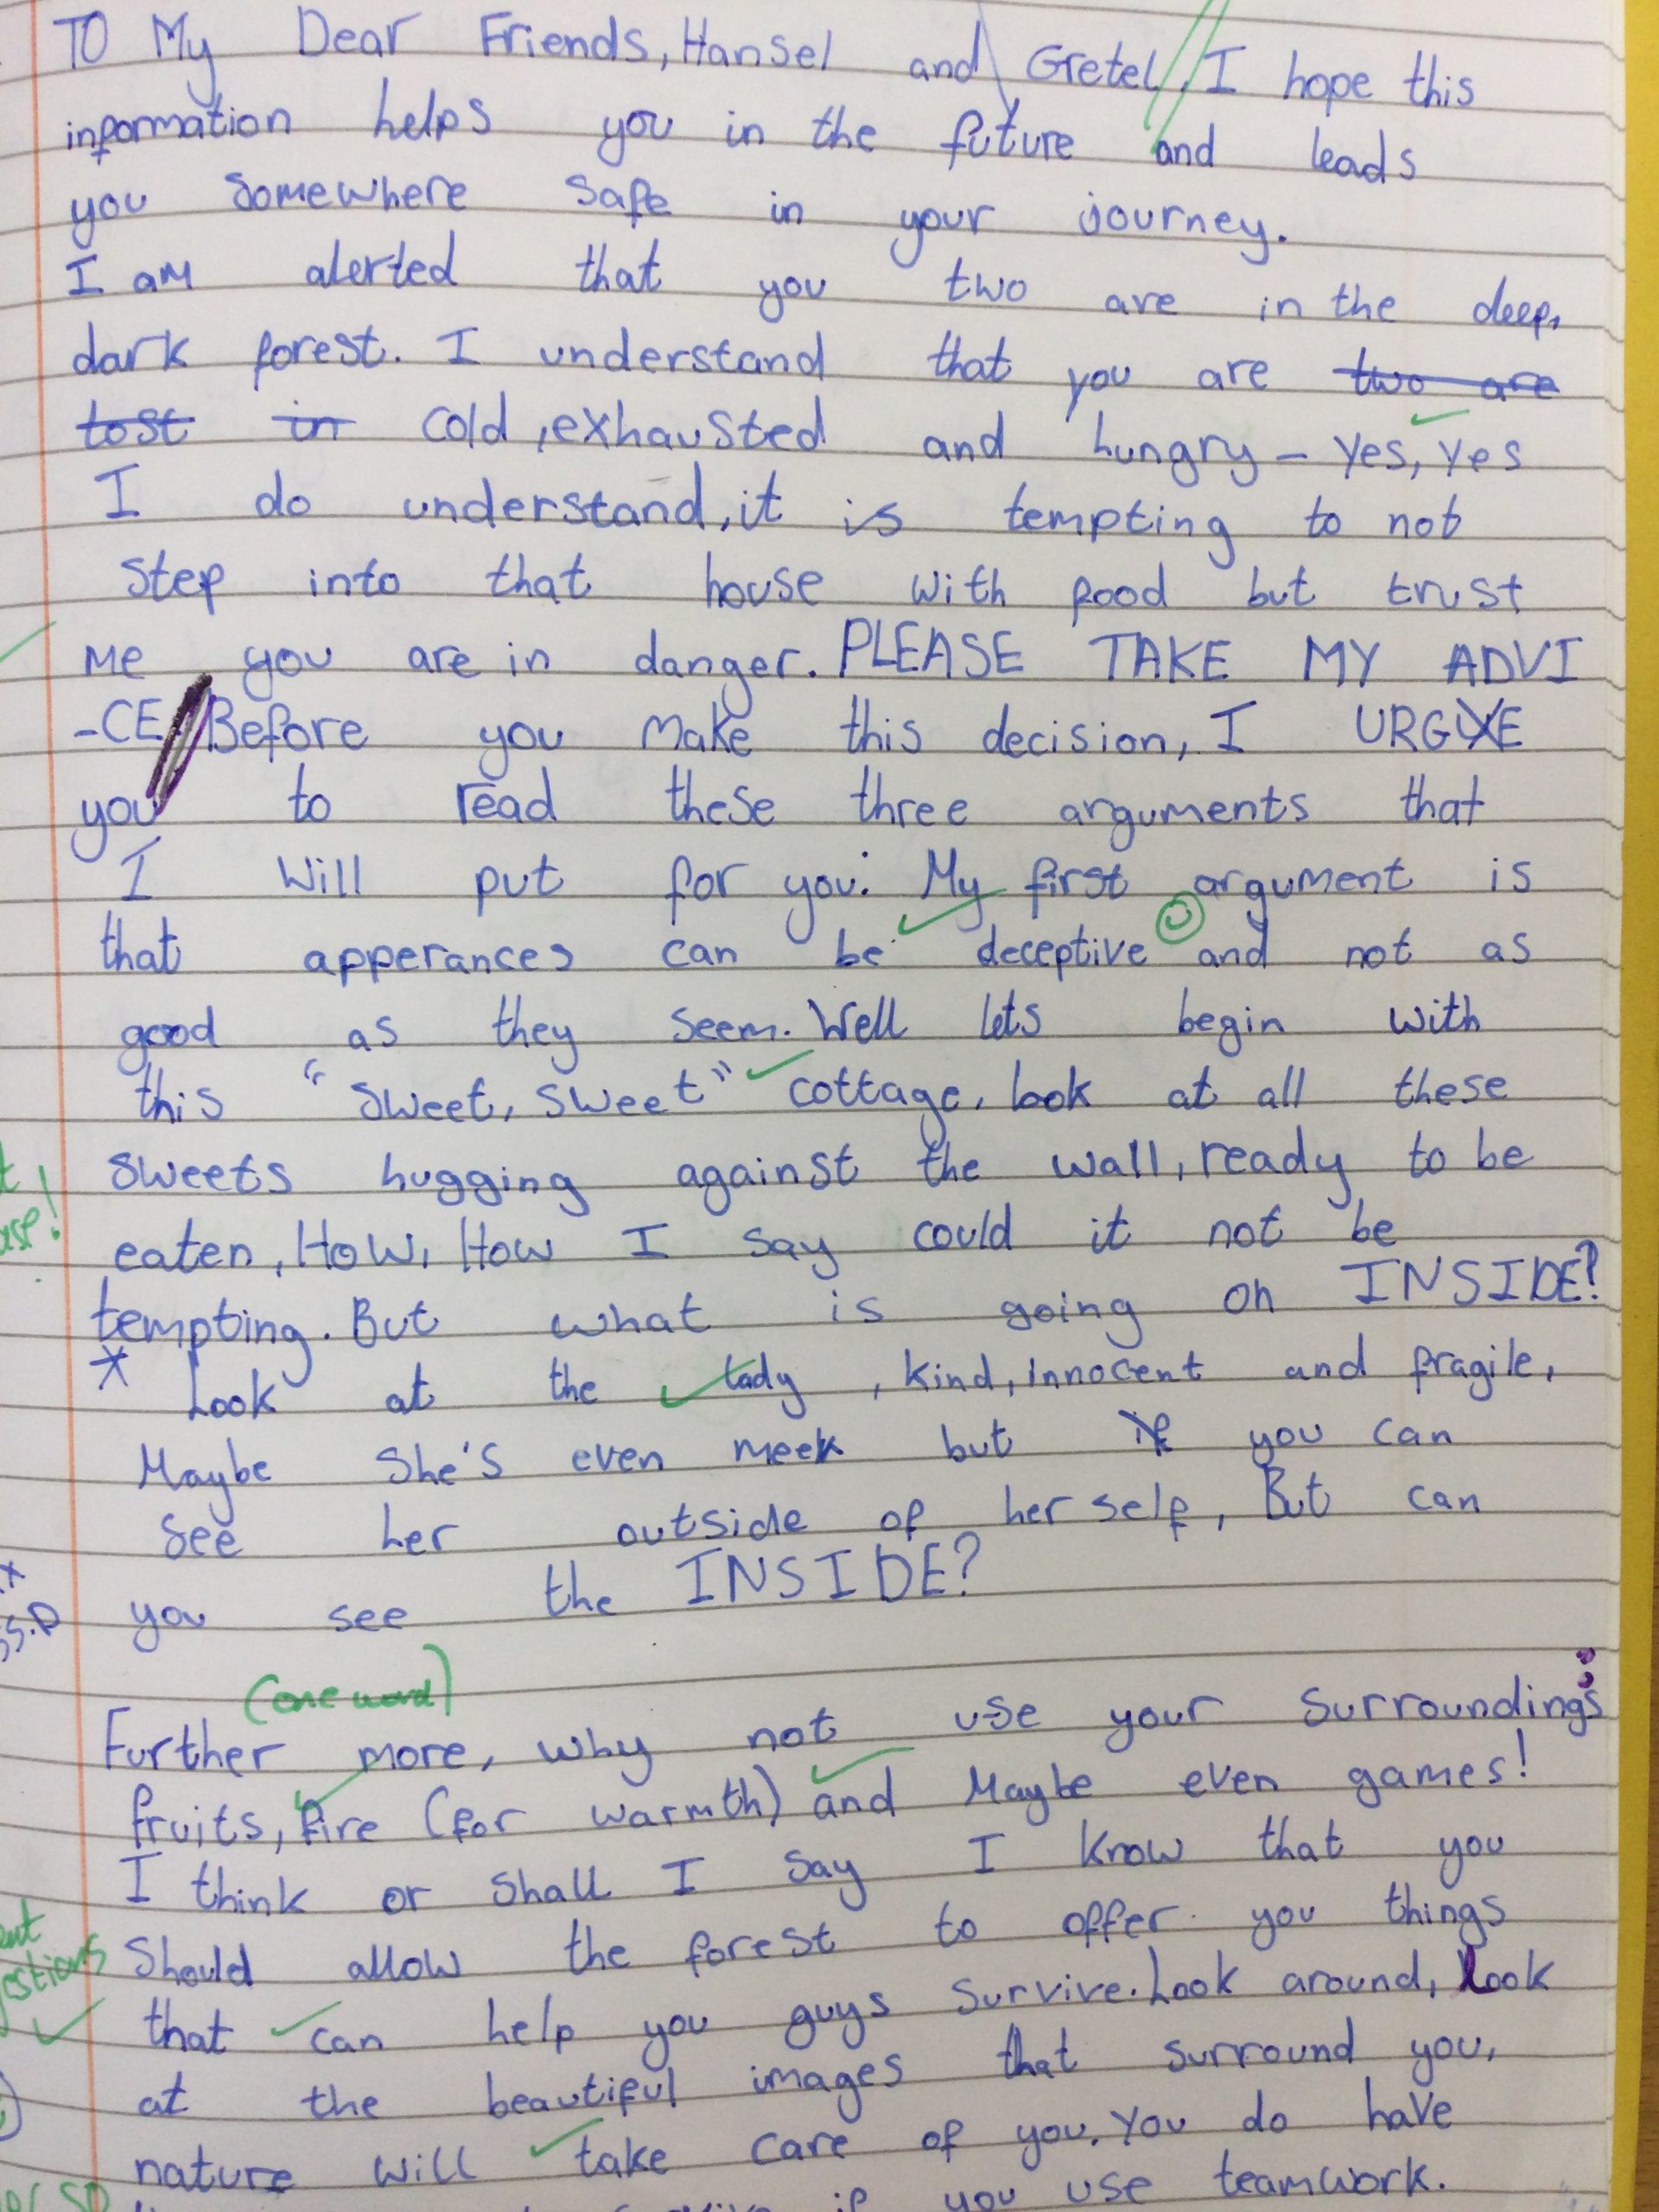 TO My Dear Friends, Hansel and Gretel, I hope this
information helps you in the future and leads
you somewhere safe in your journey.
I am alerted that you two are in the deep,
dark forest. I understand that you are two are
lost in cold, exhausted and hungry - yes, yes
I do understand, it is tempting to not
step into that house with food but trust
me you are in danger. PLEASE TAKE MY ADVI
-CE. Before you make this decision, I URGE
you to read these three arguments that
I will put for you: My first argument is
that apperances can be deceptive and not as
good as they seem. Well lets begin with
this "sweet, sweet" cottage, look at all these
sweets hugging against the wall, ready to be
eaten, HoW, How I say could it not be
tempting. But what is going on INSIDE?
* Look at the lady, kind, innocent and fragile,
Maybe she's even meek but if you can
see her outside of her self, But can
you see the INSIDE?
(one word)
Further more, why not use your surroundings:
fruits, fire (for warmth) and Maybe even games!
I think or shall I say I know that you
should allow the forest to offer you things
that can help you guys survive. Look around, look
at the beautiful images that surround you,
nature will take care of you. You do have
if you use teamwork.